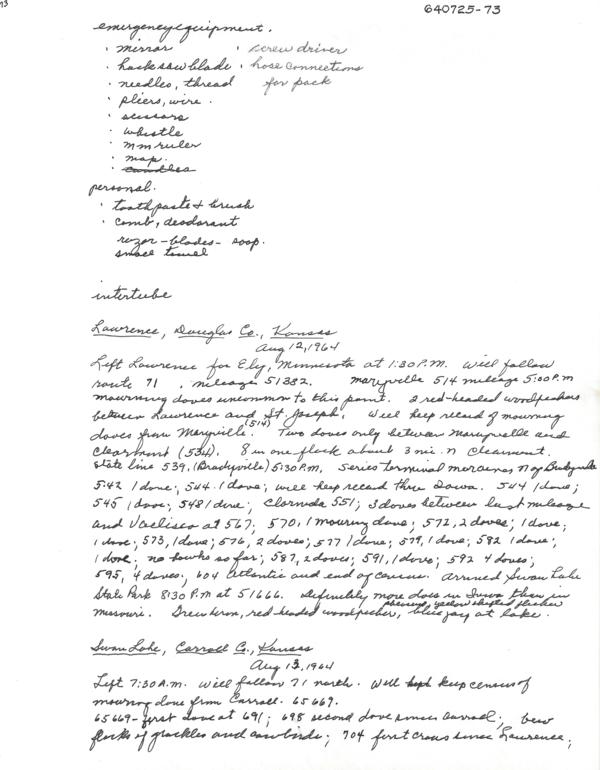 73
640725-73
emergency equipment.
· mirror · screw driver
· hack saw blade · hose connections
· needles, thread for pack
· pliers, wire.
· scissors
· whistle
· mm ruler
· map.
· candles
personal.
· toothpaste & brush
· comb, deodorant
razor-blades-soap.
small towel
intertube
Lawrence, Douglas Co., Kansas
Aug 12, 1964
Left Lawrence for Ely, Minnesota at 1:30 P.M. will follow
route 71, mileage 51382. Maryville 514 mileage 5:00 P.M
mourning doves uncommon to this point. 2 red-headed woodpeckers
between Lawrence and St. Joseph. Will keep record of mourning
doves from Maryville (514). Two doves only between Maryville and
Clearmont (534). 8 in one flock about 3 mi. N Clearmont.
State line 539, (Braddyville) 5:30 P.M. Series terminal moraines N of
542 1 dove; 544 1 dove; will keep record thru Iowa. 544 1 dove;
545 1 dove; 548 1 dove; Clarinda 551; 3 doves between last mileage
and Villisca at 567; 570, 1 mourning dove; 572, 2 doves; 1 dove;
1 dove; 573, 1 dove; 576, 2 doves; 577 1 dove; 579, 1 dove; 582 1 dove;
1 dove; no hawks so far; 587, 2 doves; 591, 1 dove; 592 4 doves;
595, 4 doves; 604 Atlantic and end of census. Arrived Swan Lake
State Park 8:30 P.M at 51666. Definitely more doves in Iowa than in
Missouri. Green heron, red headed woodpecker, pheasant, yellow shafted flicker blue jay at lake.
Swan Lake, Carroll Co., Kansas
Aug 13, 1964
Left 7:30 A.M. will follow 71 north. Will keep census of
mourning dove from Carroll. 65669.
65669 - first dove at 691; 698 second dove since Carroll; few
flocks of grackles and cowbirds; 704 first crows since Lawrence;